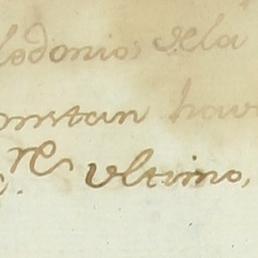 lodonio, dela
onstan hav
re ultimo,